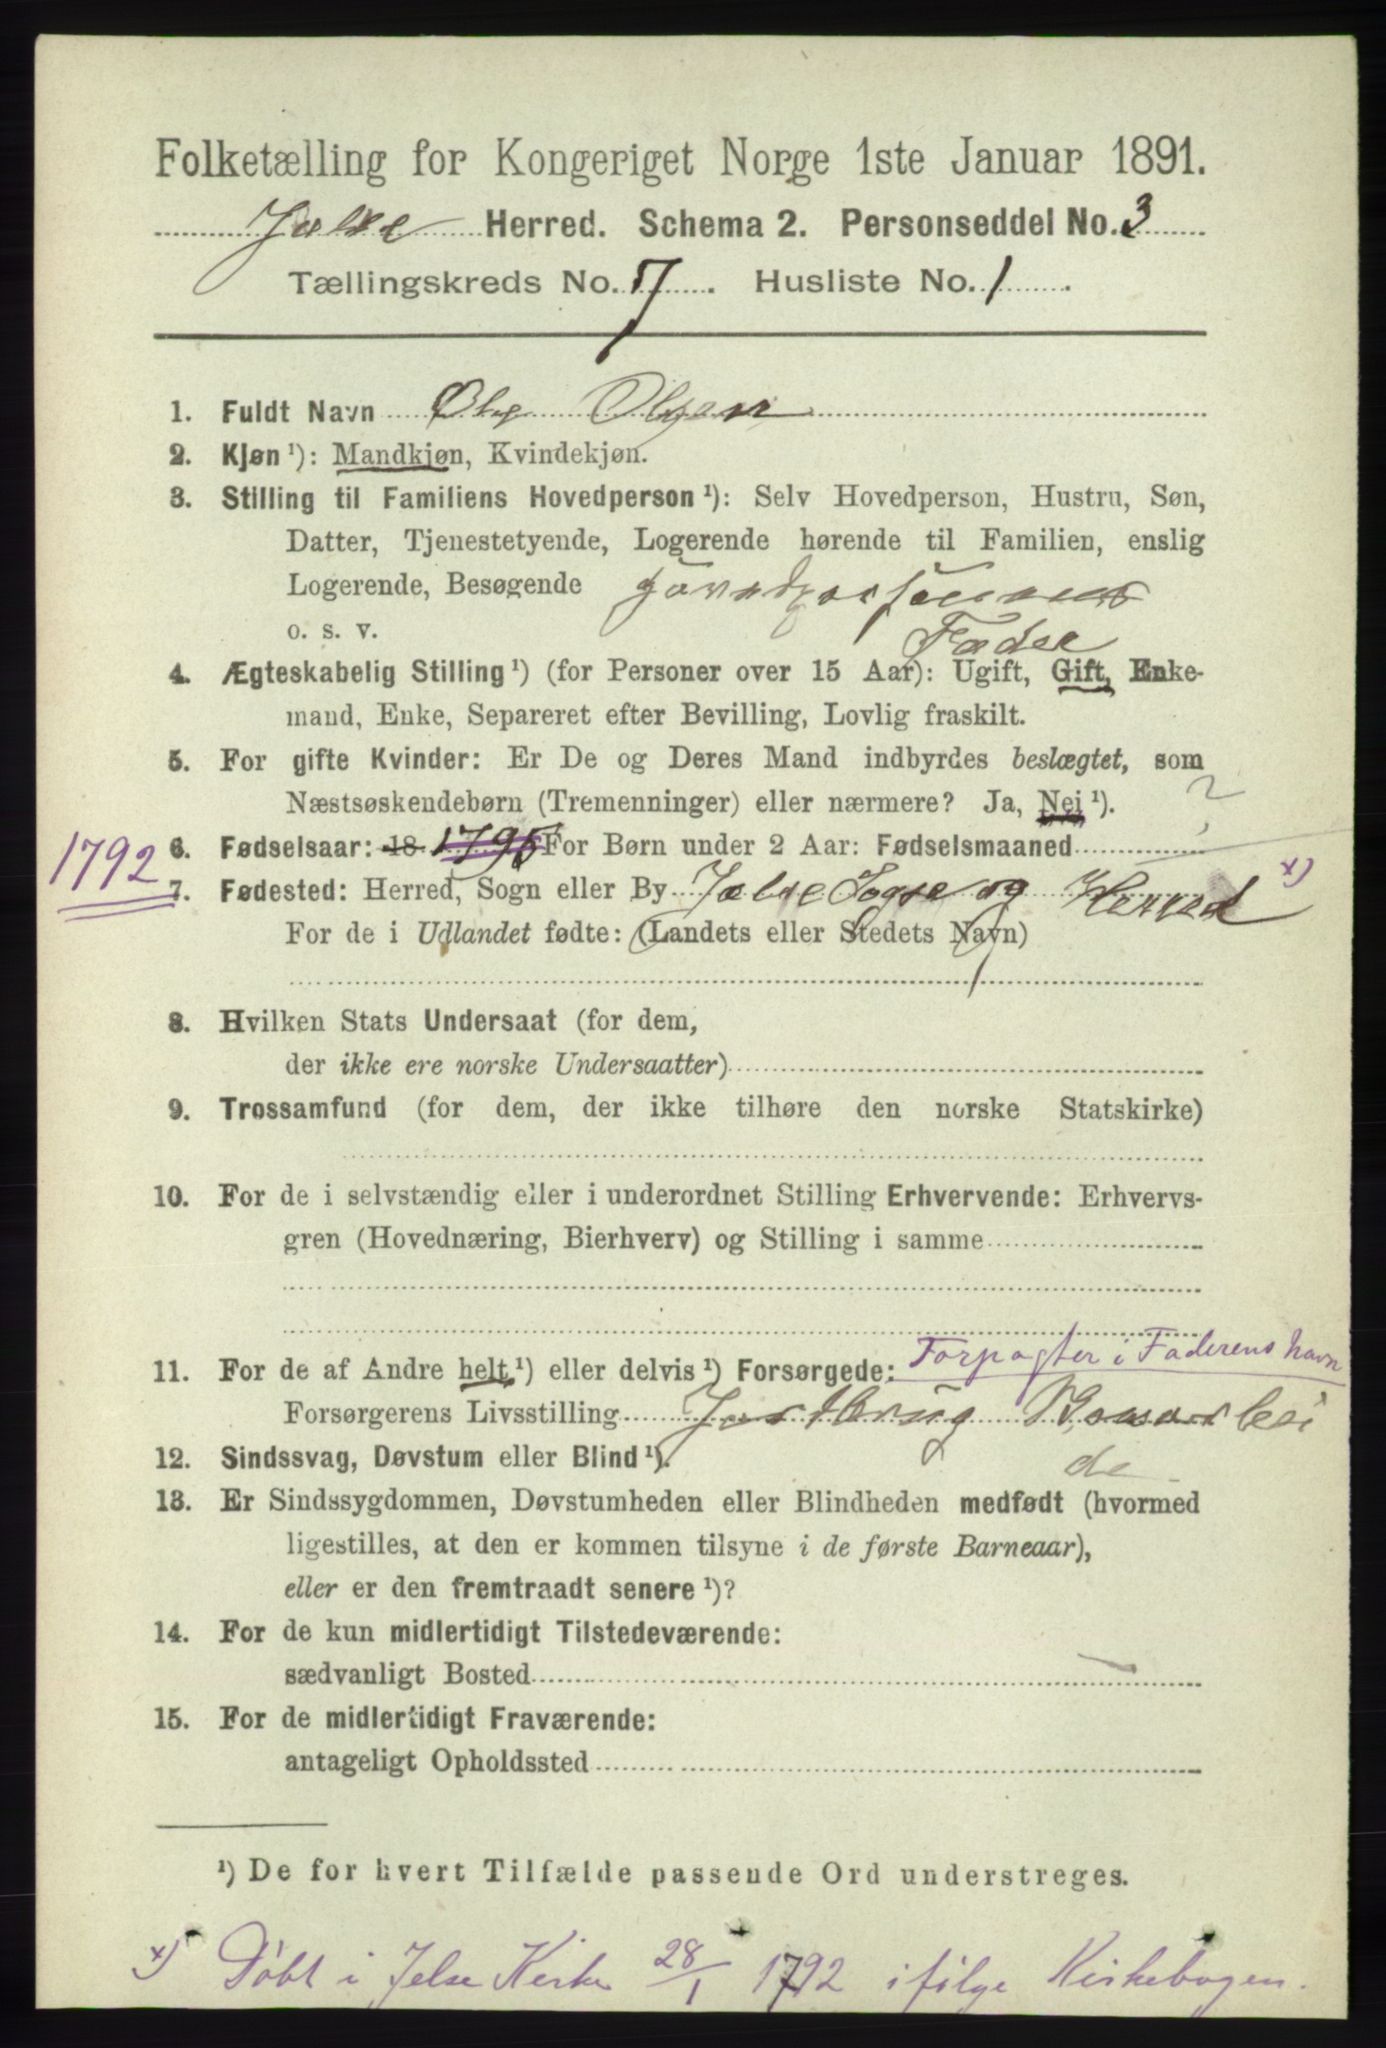 Folketælling for Kongeriget Norge 1ste Januar 1891.
Jælse Herred. Schema 2. Personseddel No. 3
Tællingskreds No. 7. Husliste No. 1.
1. Fuldt Navn Oluf Olsen
2. Kjøn ¹): Mandkjøn, Kvindekjøn.
3. Stilling til Familiens Hovedperson ¹): Selv Hovedperson, Hustru, Søn,
Datter, Tjenestetyende, Logerende hørende til Familien, enslig
Logerende, Besøgende Hovedpersonens
o. s. v. Fader
4. Ægteskabelig Stilling ¹) (for Personer over 15 Aar): Ugift, Gift, Enke-
mand, Enke, Separeret efter Bevilling, Lovlig fraskilt.
5. For gifte Kvinder: Er De og Deres Mand indbyrdes beslægtet, som
Næstsøskendebørn (Tremenninger) eller nærmere? Ja, Nei ¹). ?
1792 6. Fødselsaar: 18 1795 For Børn under 2 Aar: Fødselsmaaned
7. Fødested: Herred, Sogn eller By Jælse Sogn og Herred x)
For de i Udlandet fødte: (Landets eller Stedets Navn)
8. Hvilken Stats Undersaat (for dem,
der ikke ere norske Undersaatter)
9. Trossamfund (for dem, der ikke tilhøre den norske Statskirke)
10. For de i selvstændig eller i underordnet Stilling Erhvervende: Erhvervs-
gren (Hovednæring, Bierhverv) og Stilling i samme
11. For de af Andre helt ¹) eller delvis ¹) Forsørgede: Forpagter i Faderens Navn
Forsørgerens Livsstilling Jordbrug
12. Sindssvag, Døvstum eller Blind ¹). de
13. Er Sindssygdommen, Døvstumheden eller Blindheden medfødt (hvormed
ligestilles, at den er kommen tilsyne i de første Barneaar),
eller er den fremtraadt senere ¹)?
14. For de kun midlertidigt Tilstedeværende:
sædvanligt Bosted
15. For de midlertidigt Fraværende:
antageligt Opholdssted
¹) De for hvert Tilfælde passende Ord understreges.
x) Døbt i Jelse Kirke 28/1 1792 ifølge Kirkebogen.